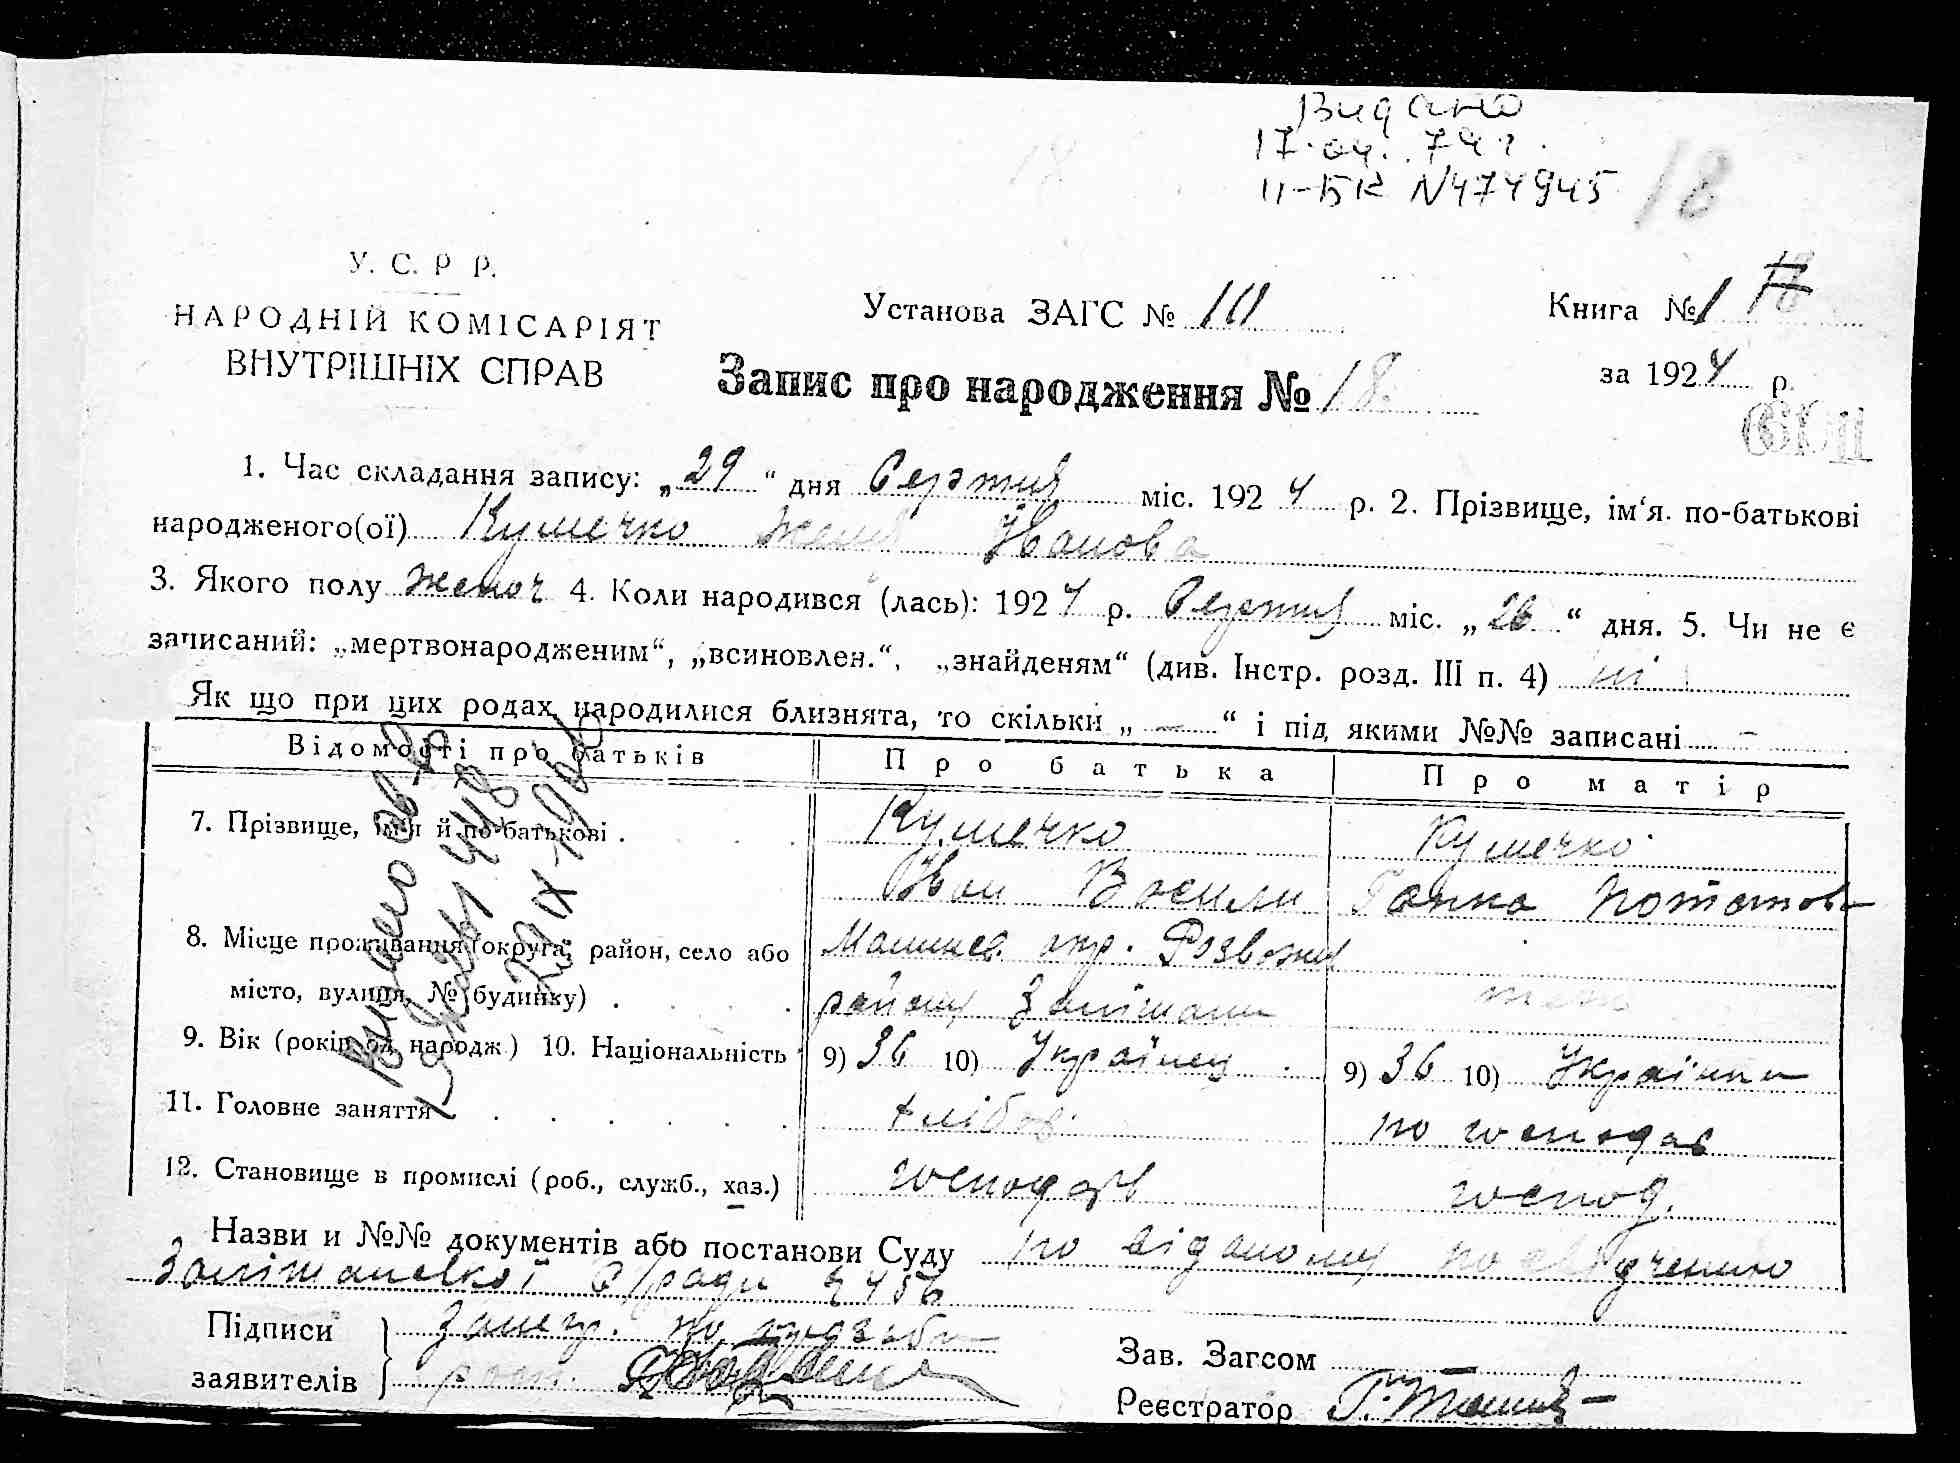 Видано
17.04.74 г.
II-БК N474945 18
У. С. Р Р.
НАРОДНІЙ КОМІСАРІЯТ
ВНУТРІШНІХ СПРАВ
Установа ЗАГС № 111
Книга № 1
за 1924 р.
Запис про народження № 18.
1. Час складання запису: „29“ дня Серпня міс. 1924 р. 2. Прізвище, ім‘я. по-батькові
народженого(ої) Кумечко Женя Іванова
3. Якого полу женоч 4. Коли народився (лась): 1924 р. Серпня міс. „26“ дня. 5. Чи не є
записаний: „мертвонародженим“, „всиновлен.“, „знайденям“ (див. Інстр. розд. III п. 4) ні
Як що при цих родах народилися близнята, то скільки „ — “ і під якими №№ записані –
Відомості про батьків Про батька Про матір
7. Прізвище, ім'я й по-батькові . Кумечко Кумечко
Іван Васили Ганна Потапов
8. Місце проживання (округа, район, село або Малинсв. окр. Розважів
місто, вулиця, № будинку) . району Залішани теж
9. Вік (років од народж.) 10. Національність 9) 36 10) Українец 9) 36 10) Українка
11. Головне заняття хлібор. по господар
12. Становище в промислі (роб., служб., хаз.) господарь господ.
Назви и №№ документів або постанови Суду по віданому посвідченню
Залішанської С/ради 456
Підписи
заявителів
Зав. Загсом
Реєстратор